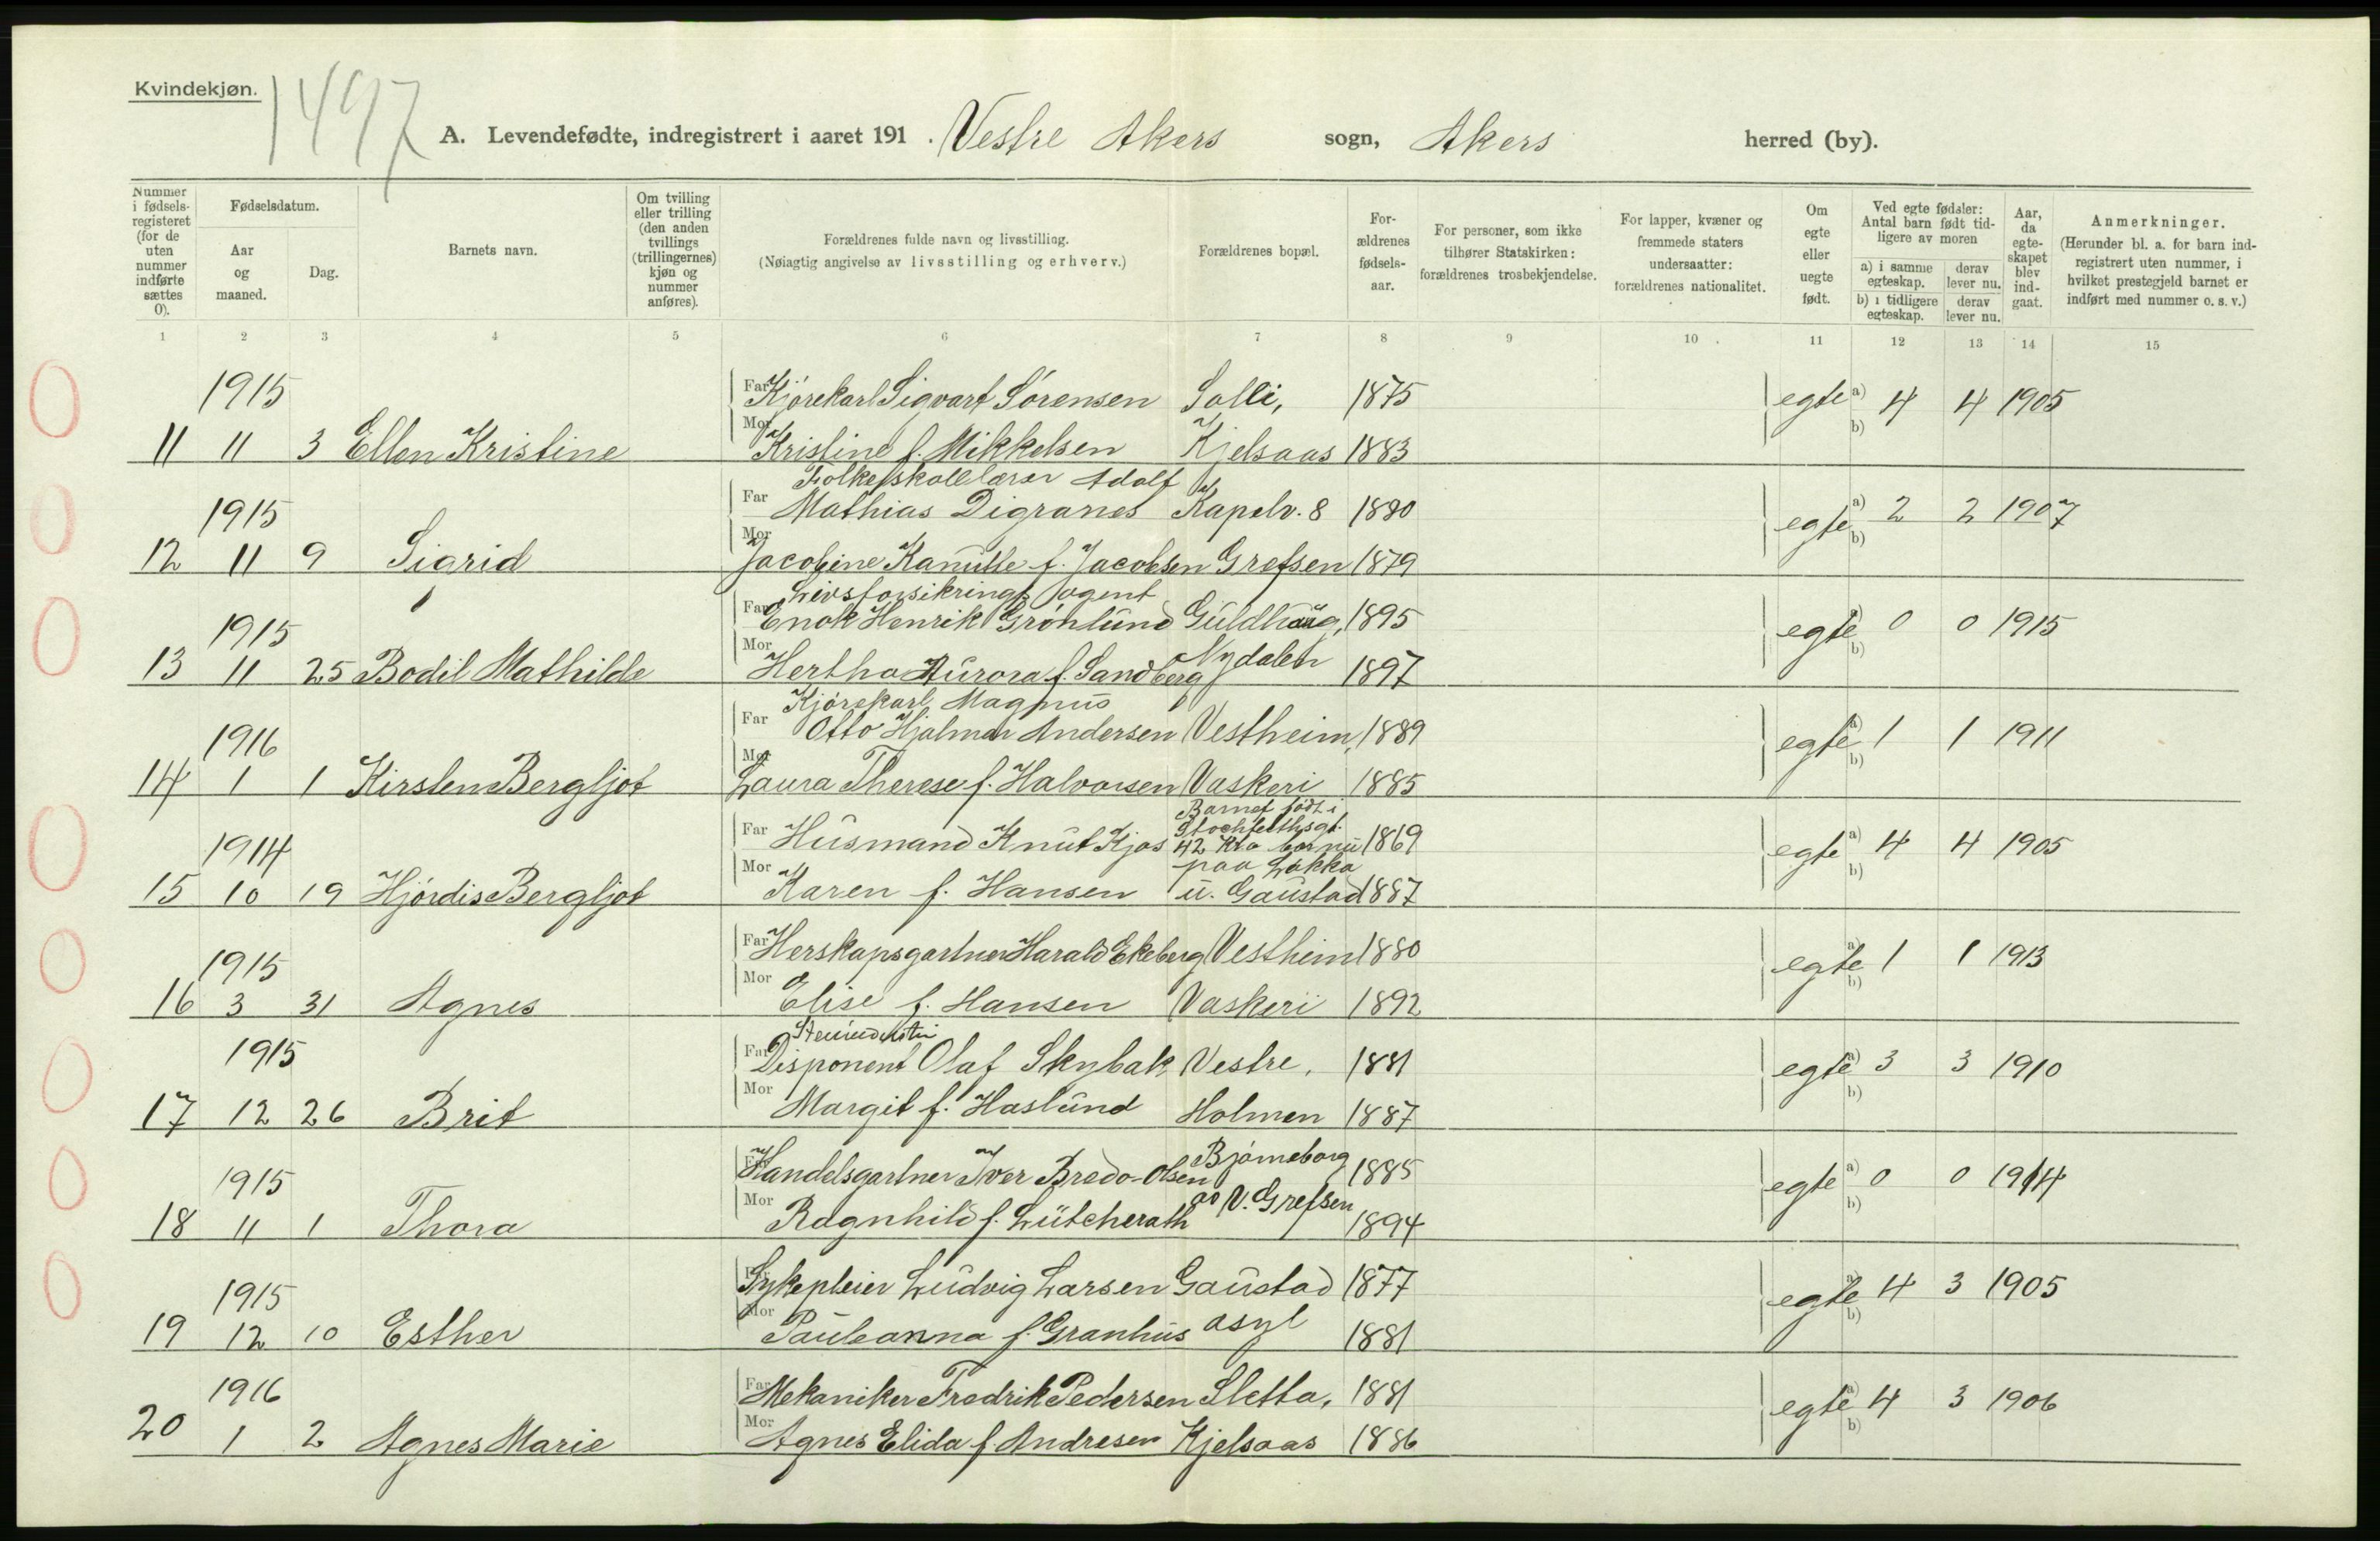 Kvindekjøn.
1497
A. Levendefødte, indregistrert i aaret 191 . Vestre Akers sogn, Akers herred (by).
Nummer i fødselsregisteret (for de uten nummer indførte sættes 0).
Fødselsdatum.
Aar og maaned.
Dag.
Barnets navn.
Om tvilling eller trilling (den anden tvillings (trillingernes) kjøn og nummer anføres).
Forældrenes fulde navn og livsstilling.
(Nøiagtig angivelse av livsstilling og erhverv.)
Forældrenes bopæl.
Forældrenes fødselsaar.
For personer, som ikke tilhører Statskirken: forældrenes trosbekjendelse.
For lapper, kvæner og fremmede staters undersaatter: forældrenes nationalitet.
Om egte eller uegte født.
Ved egte fødsler: Antal barn født tidligere av moren
a) i samme egteskap. derav lever nu.
b) i tidligere egteskap. derav lever nu.
Aar, da egteskapet blev indgaat.
Anmerkninger.
(Herunder bl. a. for barn indregistrert uten nummer, i hvilket prestegjeld barnet er indført med nummer o. s. v.)
1 2 3 4 5 6 7 8 9 10 11 12 13 14 15
1915 Far Kjørekarl Sigvart Sørensen Solli, 1875 egte a) 4 4 1905
11 11 3 Ellen Kristine Mor Kristine f. Mikkelsen Kjelsaas 1883 b)
Folkeskolelærer Adolf
1915 Far Mathias Digranes Kapelv. 8 1880 egte a) 2 2 1907
12 11 9 Sigrid Mor Jacobine Kamille f. Jacobsen Grefsen 1879 b)
Livsforsikrings agent
1915 Far Enok Henrik Grønlund Guldhaug, 1895 egte a) 0 0 1915
13 11 25 Bodil Mathilde Mor Hertha Aurora f. Sandberg Nydalen 1897 b)
Kjørekarl Magnus
1916 Far Otto Hjalmar Andersen Vestheim, 1889 egte a) 1 1 1911
14 1 1 Kirsten Bergljot Mor Laura Therese f. Halvorsen Vaskeri 1885 b)
Barnet født i
1914 Far Husmand Knut Kjos Stockflethsgt. 42 Kra bor nu 1869 egte a) 4 4 1905
paa Løkka
15 10 19 Hjørdis Bergljot Mor Karen f. Hansen u. Gaustad 1887 b)
1915 Far Herskapsgartner Harald Ekeberg Vestheim 1880 egte a) 1 1 1913
16 3 31 Agnes Mor Elise f. Hansen Vaskeri 1892 b)
1915 Far Disponent Olaf Skybak Vestre, 1881 egte a) 3 3 1910
17 12 26 Brit Mor Margit f. Haslund Holmen 1887 b)
1915 Far Handelsgartner Iver Bredo-Olsen Bjørneborg 1885 egte a) 0 0 1914
18 11 1 Thora Mor Ragnhild f. Lütcherath av V. Grefsen 1894 b)
1915 Far Sykepleier Ludvig Larsen Gaustad 1877 egte a) 4 3 1905
19 12 10 Esther Mor Pauleanna f. Granhus asyl 1881 b)
1916 Far Mekaniker Fredrik Pedersen Sletta, 1881 egte a) 4 3 1906
20 1 2 Agnes Marie Mor Agnes Elida f. Andresen Kjelsaas 1886 b)